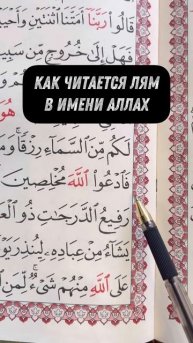 قَالُوا رَبَّنَا أَمَتَّنَا اثْنَتَيْنِ وَأَحْيَ
فَهَلْ إِلَىٰ خُرُوجٍ مِّن سَبِي
КАК ЧИТАЕТСЯ ЛЯМ
В ИМЕНИ АЛЛАХ
هُوَ
لَكُم مِّنَ السَّمَاءِ رِزْقًا ۚ وَ
فَادْعُوا اللَّهَ مُخْلِصِينَ
رَفِيعُ الدَّرَجَاتِ ذُو الْعَ
يَشَاءُ مِنْ عِبَادِهِ لِيُنذِرَ يَوْ
عَلَى اللَّهِ مِنْهُمْ شَيْءٌ ۚ لِّمَنِ ا